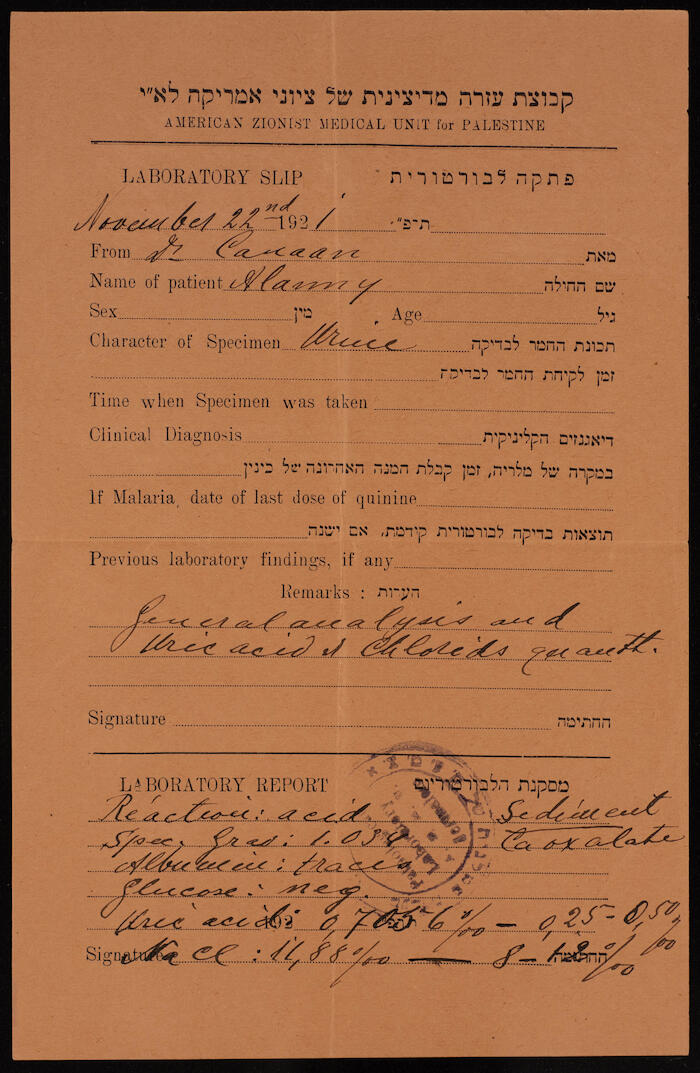 קבוצת עזרה מדיצינית של ציוני אמריקה לא"י
AMERICAN ZIONIST MEDICAL UNIT for PALESTINE
LABORATORY SLIP פתקה לבורטורית
November 22nd 1921 תרפ"
From Dr Canaan מאת
Name of patient Alanny שם החולה
Sex מין Age גיל
Character of Specimen Urine תכונת החמר לבדיקה
זמן לקיחת החמר לבדיקה
Time when Specimen was taken
Clinical Diagnosis דיאגנוזים הקליניקית
במקרה של מלריה, זמן קבלת המנה האחרונה של כינין
If Malaria, date of last dose of quinine
תוצאות בדיקה לבורטורית קודמת, אם ישנה
Previous laboratory findings, if any
Remarks : הערות
General analysis and
Uric acid & Chlorids quantit.
Signature החתימה
LABORATORY REPORT מסקנת הלבורטוריום
Reaction: acid Sediment
Spec. Grav: 1.034 Ca oxalate
Albumin: traces
Glucose: neg.
Uric acid: 192 0,7056 ‰ — 0,25 - 0,50 ‰
Signature Na Cl : 11,88 ‰ — 8 - 12 ‰ החתימה